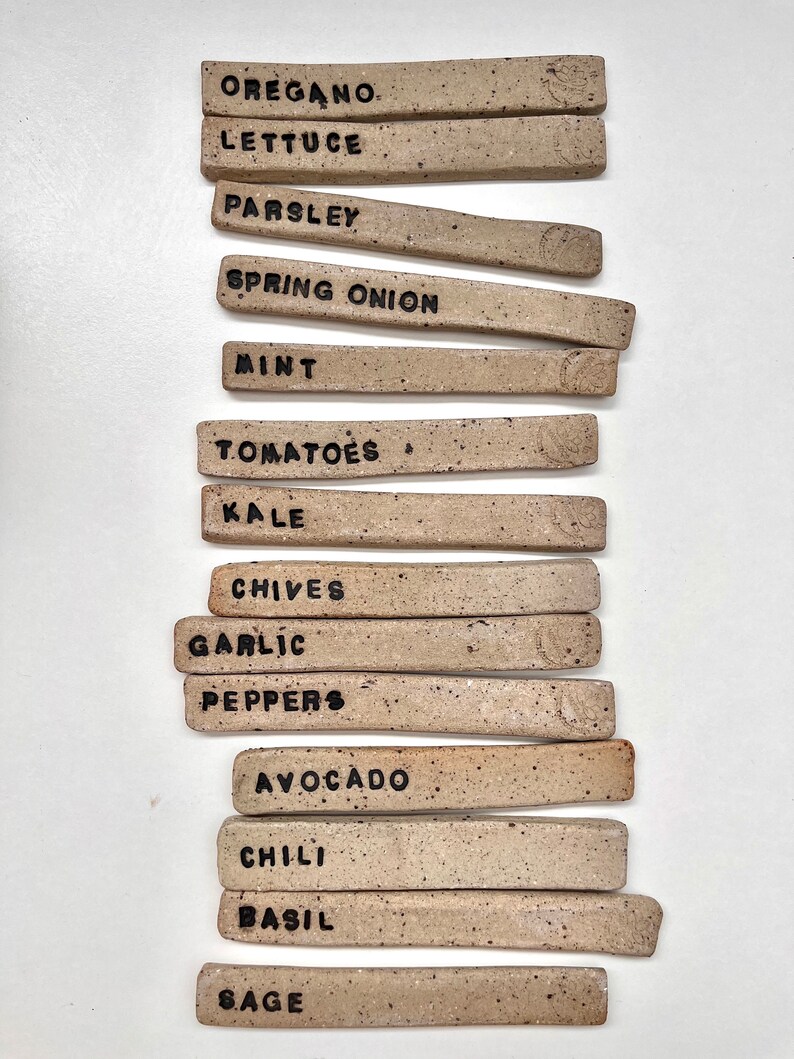 OREGANO
LETTUCE
PARSLEY
SPRING ONION
MINT
TOMATOES
KALE
CHIVES
GARLIC
PEPPERS
AVOCADO
CHILI
BASIL
SAGE